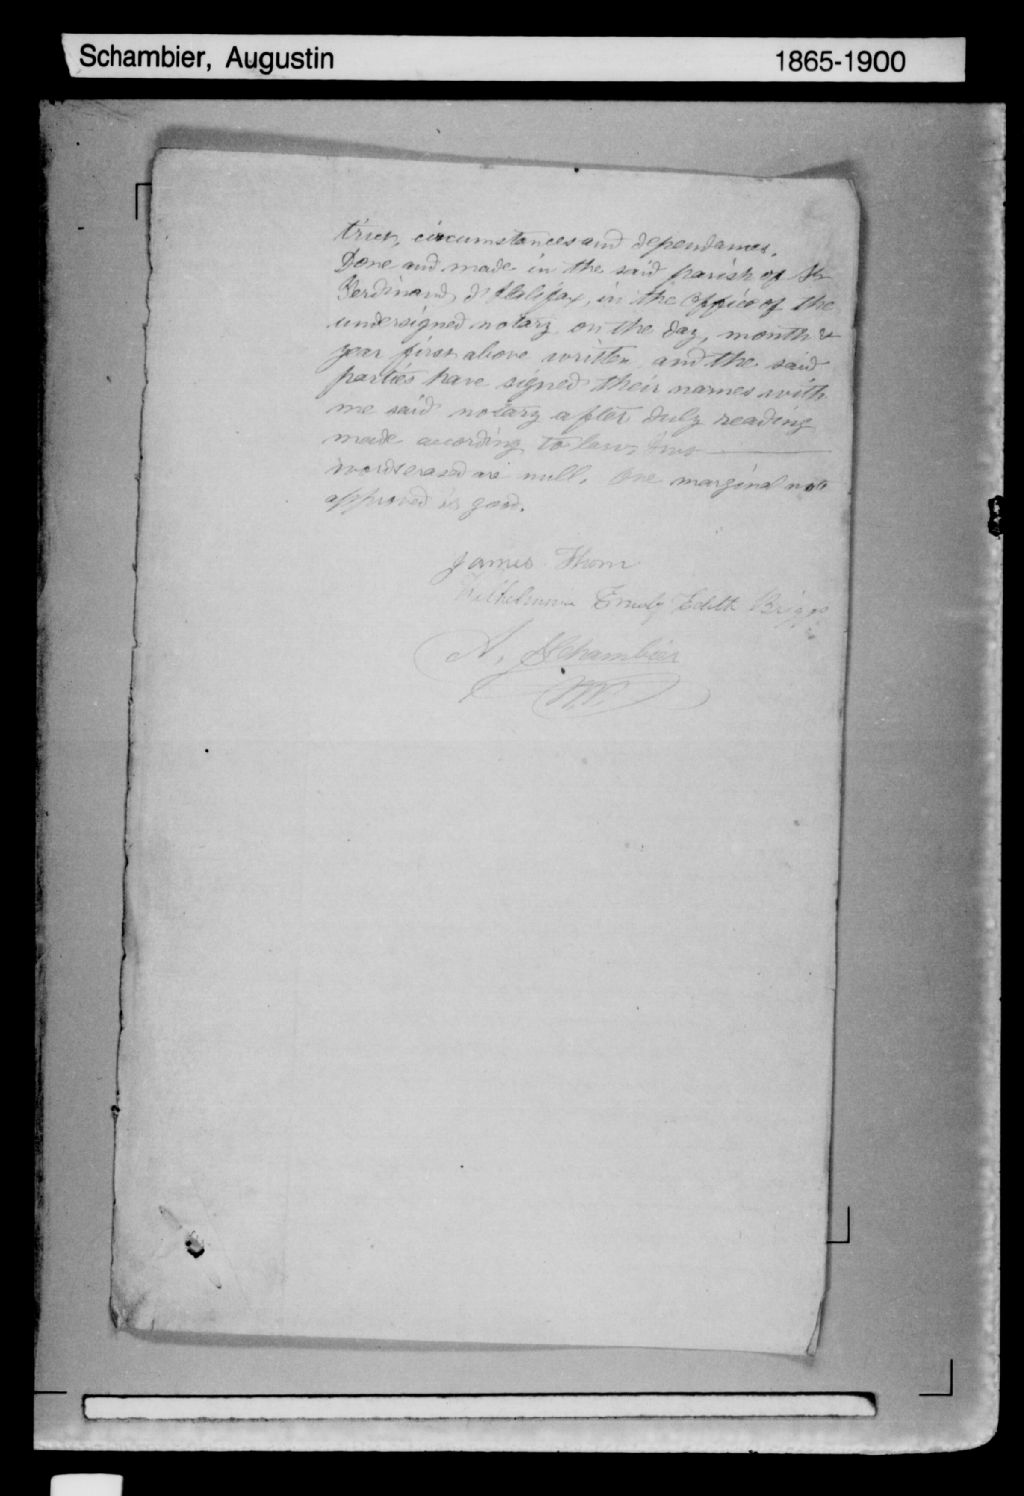 Schambier, Augustin 1865-1900
trict, circumstances and dependances.
Done and made in the said parish of St
Ferdinand d'Halifax, in the office of the
undersigned notary on the day, month &
year first above written and the said
parties have signed their names with
me said notary after duly reading
made according to law, two
words erased are null. One marginal note
approved is good.
James Thom
Wilhelmina Emily Edith Briggs
A. Schambier
N.P.